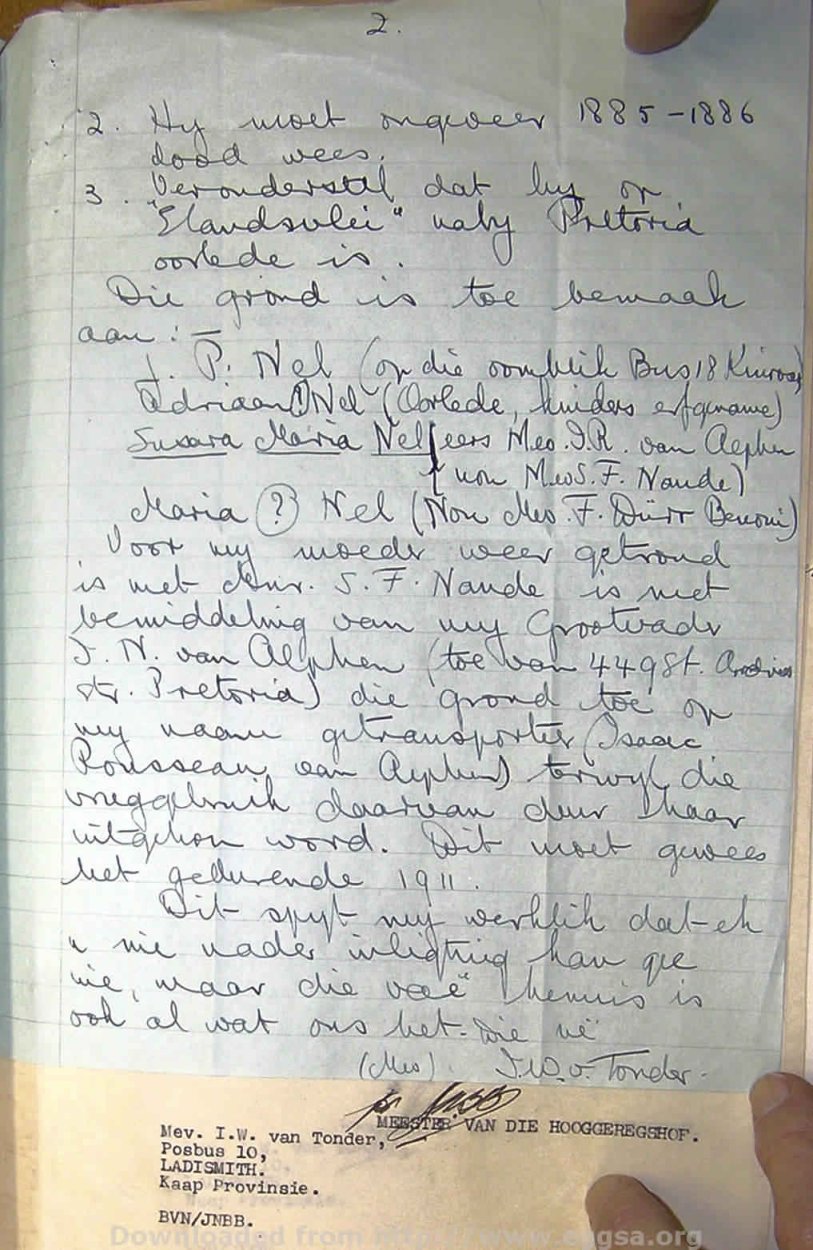 2.
2. Hy moet ongeveer 1885-1886
dood wees.
3. Veronderstel dat hy op
"Elandsvlei" naby Pretoria
oorlede is.
Die grond is toe bemaak
aan :-
J. P. Nel (op die oomblik Bus 18 Kinross)
Adriaan Nel (Oorlede, kinders erfgename)
Susara Maria Nel (eers Mev. I.R. van Alphen
(nou Mev S. F. Naude)
Maria (?) Nel (Nou Mev. F. Dürr Benoni)
Voor my moeder weer getroud
is met Mnr. S. F. Naude is met
bemiddeling van my Grootvader
J. N. van Alphen (toe van 449 St. Andries
str. Pretoria) die grond toe op
my naam getransporteer (Isaac
Rousseau van Alphen) terwyl die
vruggebruik daarvan deur haar
uitgehou word. Dit moet gewees
het gedurende 1911.
Dit spyt my werklik dat ek
u nie nader inligting kan gee
nie, maar die kennis is
ook al wat ons het. Die uwe
(Mev). I.W. v. Tonder.
MEESTER VAN DIE HOOGGEREGSHOF.
Mev. I.W. van Tonder,
Posbus 10,
LADISMITH.
Kaap Provinsie.
BVN/JNBB.
Downloaded from http://www.eggsa.org